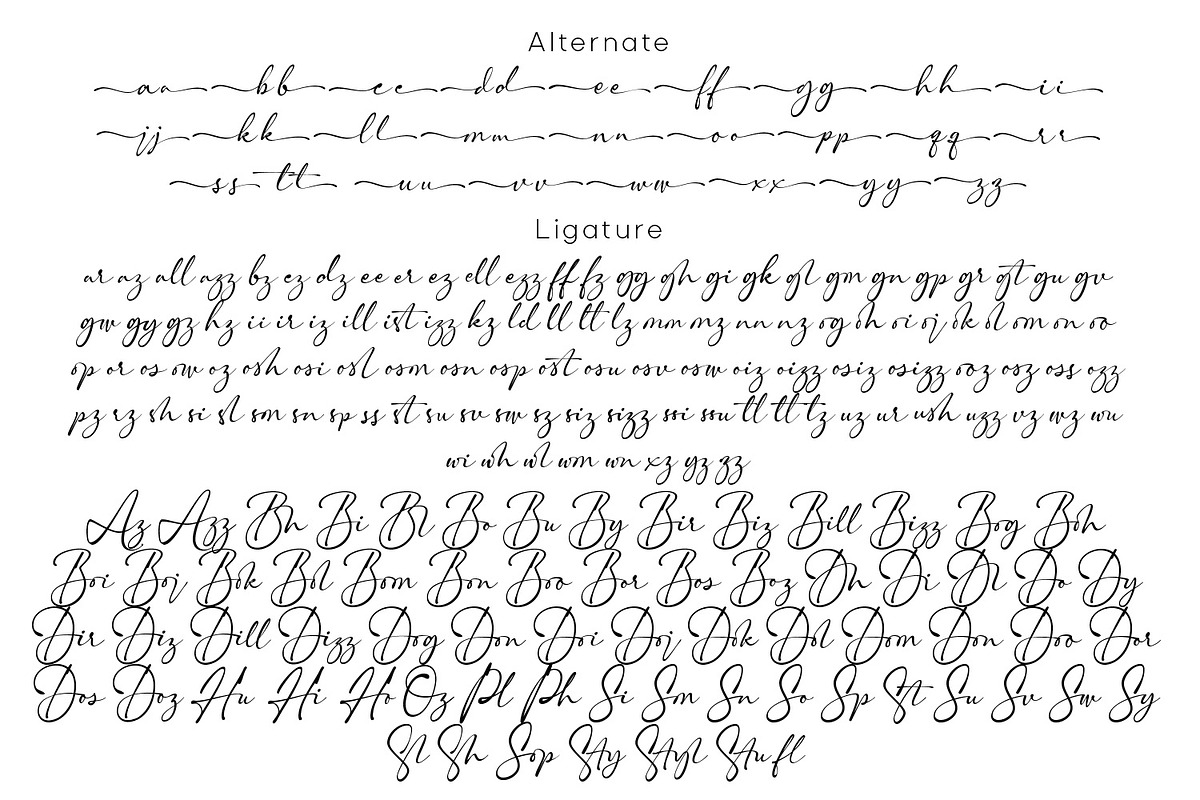 Alternate
aa bb cc dd ee ff gg hh ii
jj kk ll mm nn oo pp qq rr
ss tt uu vv ww xx yy zz
Ligature
ar az all azz bz cz dz ee er ez ell ezz ff fz gg gh gi gk gl gm gn gp gr gt gu gv
gw gy gz hz ii ir iz ill ist izz kz ld ll lt lz mm mz nn nz og oh oi oj ok ol om on oo
op or os ow oz osh osi osl osm osn osp ost osu osv osw oiz oizz osiz osizz ooz osz oss ozz
pz rz sh si sl sm sn sp ss st su sv sw sz siz sizz ssi ssu tl tt tz uz ur ush uzz vz wz wu
wi wh wl wm wn xz yz zz
Az Azz Bh Bi Bl Bo Bu By Bir Biz Bill Bizz Bog Boh
Boi Boj Bok Bol Bom Bon Boo Bor Bos Boz Dh Di Dl Do Dy
Dir Diz Dill Dizz Dog Don Doi Doj Dok Dol Dom Don Doo Dor
Dos Doz Hu Hi Ho Oz Pl Ph Si Sm Sn So Sp St Su Sv Sw Sy
Sl Sh Sop Sty Styl Stufl